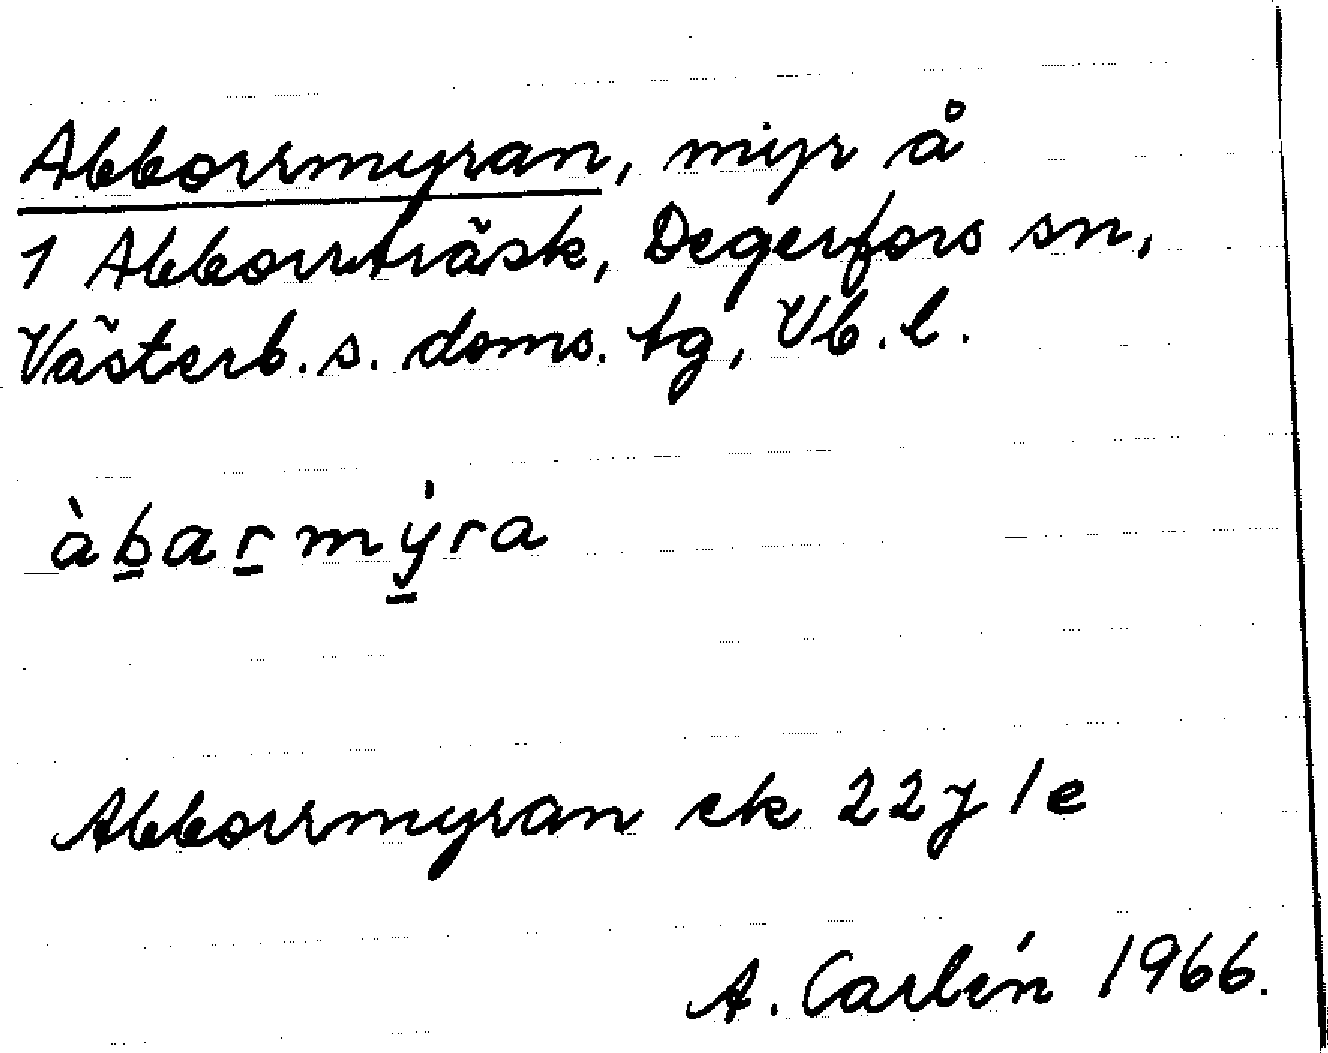 Abborrmyran, myr å
1 Abborrträsk, Degerfors sn,
Västerb. s. doms. tg, Vb. l.
àb̲ar̲mý̲ra
Abborrmyran ek 22 J 1 e
A. Carlén 1966.